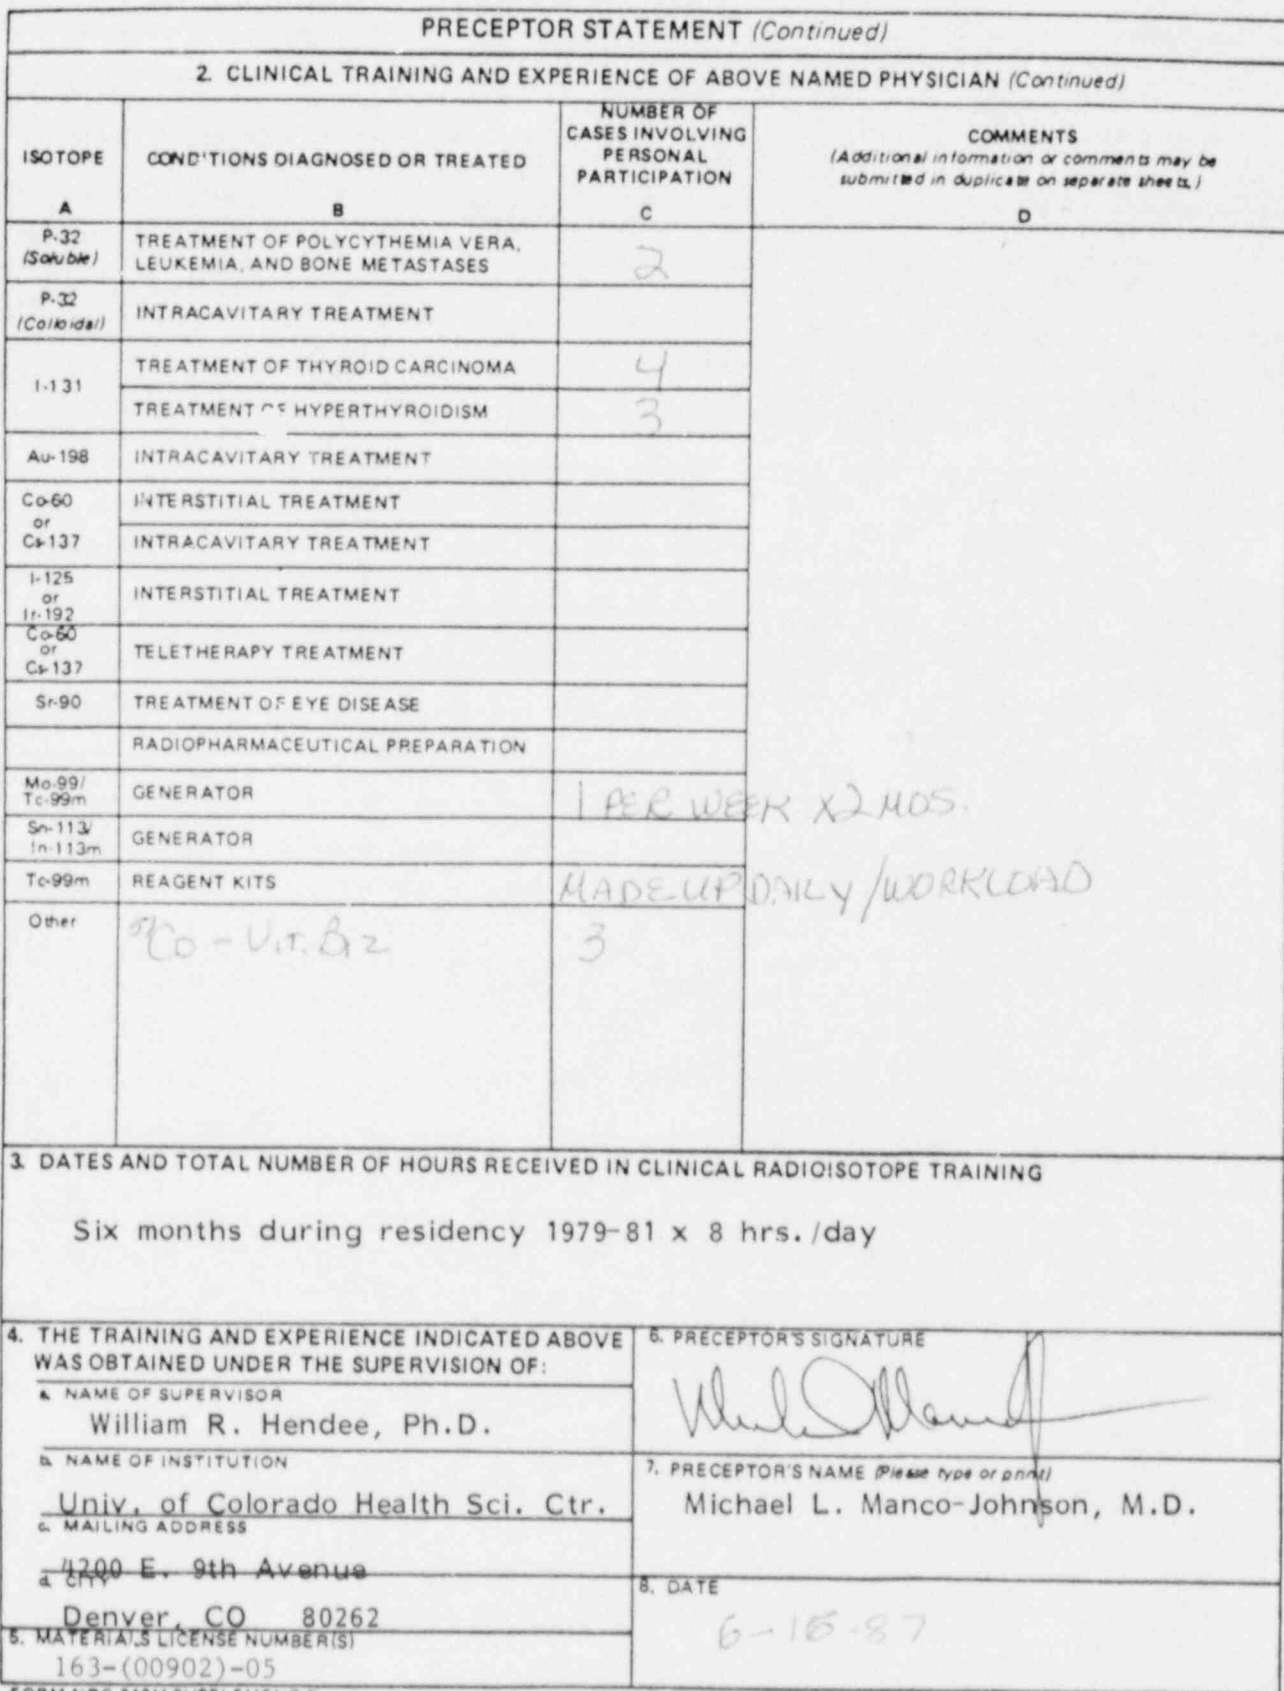 PRECEPTOR STATEMENT (Continued)
2. CLINICAL TRAINING AND EXPERIENCE OF ABOVE NAMED PHYSICIAN (Continued)
ISOTOPE
A
CONDITIONS DIAGNOSED OR TREATED
B
NUMBER OF
CASES INVOLVING
PERSONAL
PARTICIPATION
C
COMMENTS
(Additional information or comments may be
submitted in duplicate on separate sheets.)
D
P-32
(Soluble)
TREATMENT OF POLYCYTHEMIA VERA,
LEUKEMIA, AND BONE METASTASES
2
P-32
(Colloidal)
INTRACAVITARY TREATMENT
I-131
TREATMENT OF THYROID CARCINOMA
4
TREATMENT OF HYPERTHYROIDISM
3
Au-198
INTRACAVITARY TREATMENT
Co-60
or
Cs-137
INTERSTITIAL TREATMENT
INTRACAVITARY TREATMENT
I-125
or
Ir-192
INTERSTITIAL TREATMENT
Co-60
or
Cs-137
TELETHERAPY TREATMENT
Sr-90
TREATMENT OF EYE DISEASE
RADIOPHARMACEUTICAL PREPARATION
Mo-99/
Tc-99m
GENERATOR
1 PER WEEK X2 MOS.
Sn-113/
In-113m
GENERATOR
Tc-99m
REAGENT KITS
MADE UP DAILY/WORKLOAD
Other
57Co - VIT. B12
3
3. DATES AND TOTAL NUMBER OF HOURS RECEIVED IN CLINICAL RADIOISOTOPE TRAINING
Six months during residency 1979-81 x 8 hrs./day
4. THE TRAINING AND EXPERIENCE INDICATED ABOVE
WAS OBTAINED UNDER THE SUPERVISION OF:
a. NAME OF SUPERVISOR
William R. Hendee, Ph.D.
b. NAME OF INSTITUTION
Univ. of Colorado Health Sci. Ctr.
c. MAILING ADDRESS
4200 E. 9th Avenue
d. CITY
Denver, CO 80262
5. MATERIALS LICENSE NUMBER(S)
163-(00902)-05
6. PRECEPTOR'S SIGNATURE
7. PRECEPTOR'S NAME (Please type or print)
Michael L. Manco-Johnson, M.D.
8. DATE